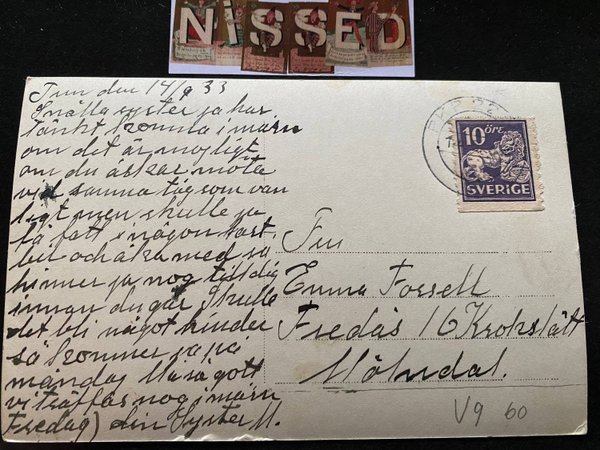 NISSED
Tun den 14/9 33
Snälla syster ja har
tänkt komma i morn
om det är mojligt
om du älskar möta
vid samma tåg som van
ligt men skulle ja
få fatt i någon last
bil och åka med så
hinner ja nog till dig
innan du går Skulle
det bli något hinder
så kommer ja på
måndag Må så gott
vi träffas nog i morn
Fredag) din Syster M.
10 ÖRE
SVERIGE
Fru
Emma Forsell
Fredås 16 Krokslätt
Mölndal.
V9 60